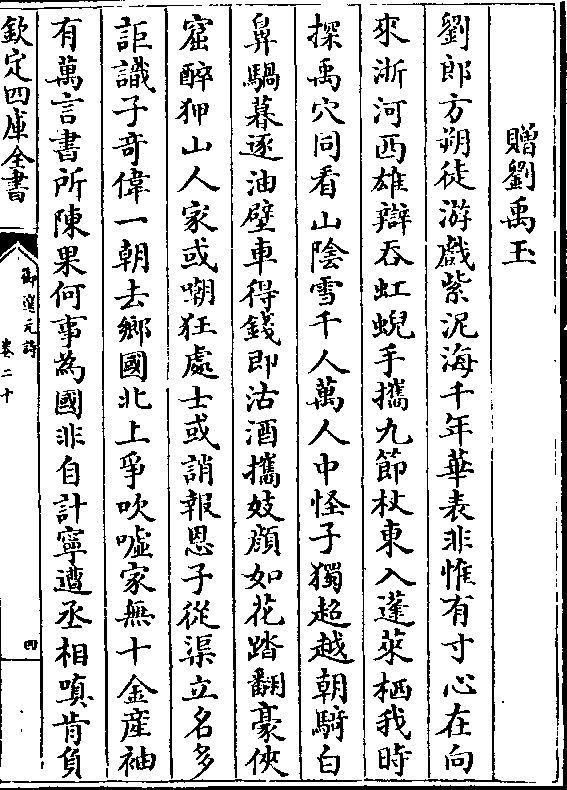 贈劉禹玉
劉郎方朔徒游戲紫泥海千年華表非惟有寸心在向
來浙河西雄辯吞虹蜺手攜九節杖東入蓬萊栖我時
探禹穴同看山陰雪千人萬人中怪子獨超越朝騎白
鼻騧暮逐油壁車得錢即沽酒攜妓顔如花踏翻豪俠
窟醉狎山人家或嘲狂處士或誚報恩子從渠立名多
詎識子奇偉一朝去鄉國北上爭吹噓家無十金産袖
有萬言書所陳果何事為國非自計寧遭丞相嗔肯負
欽定四庫全書
御選元詩
卷二十
四